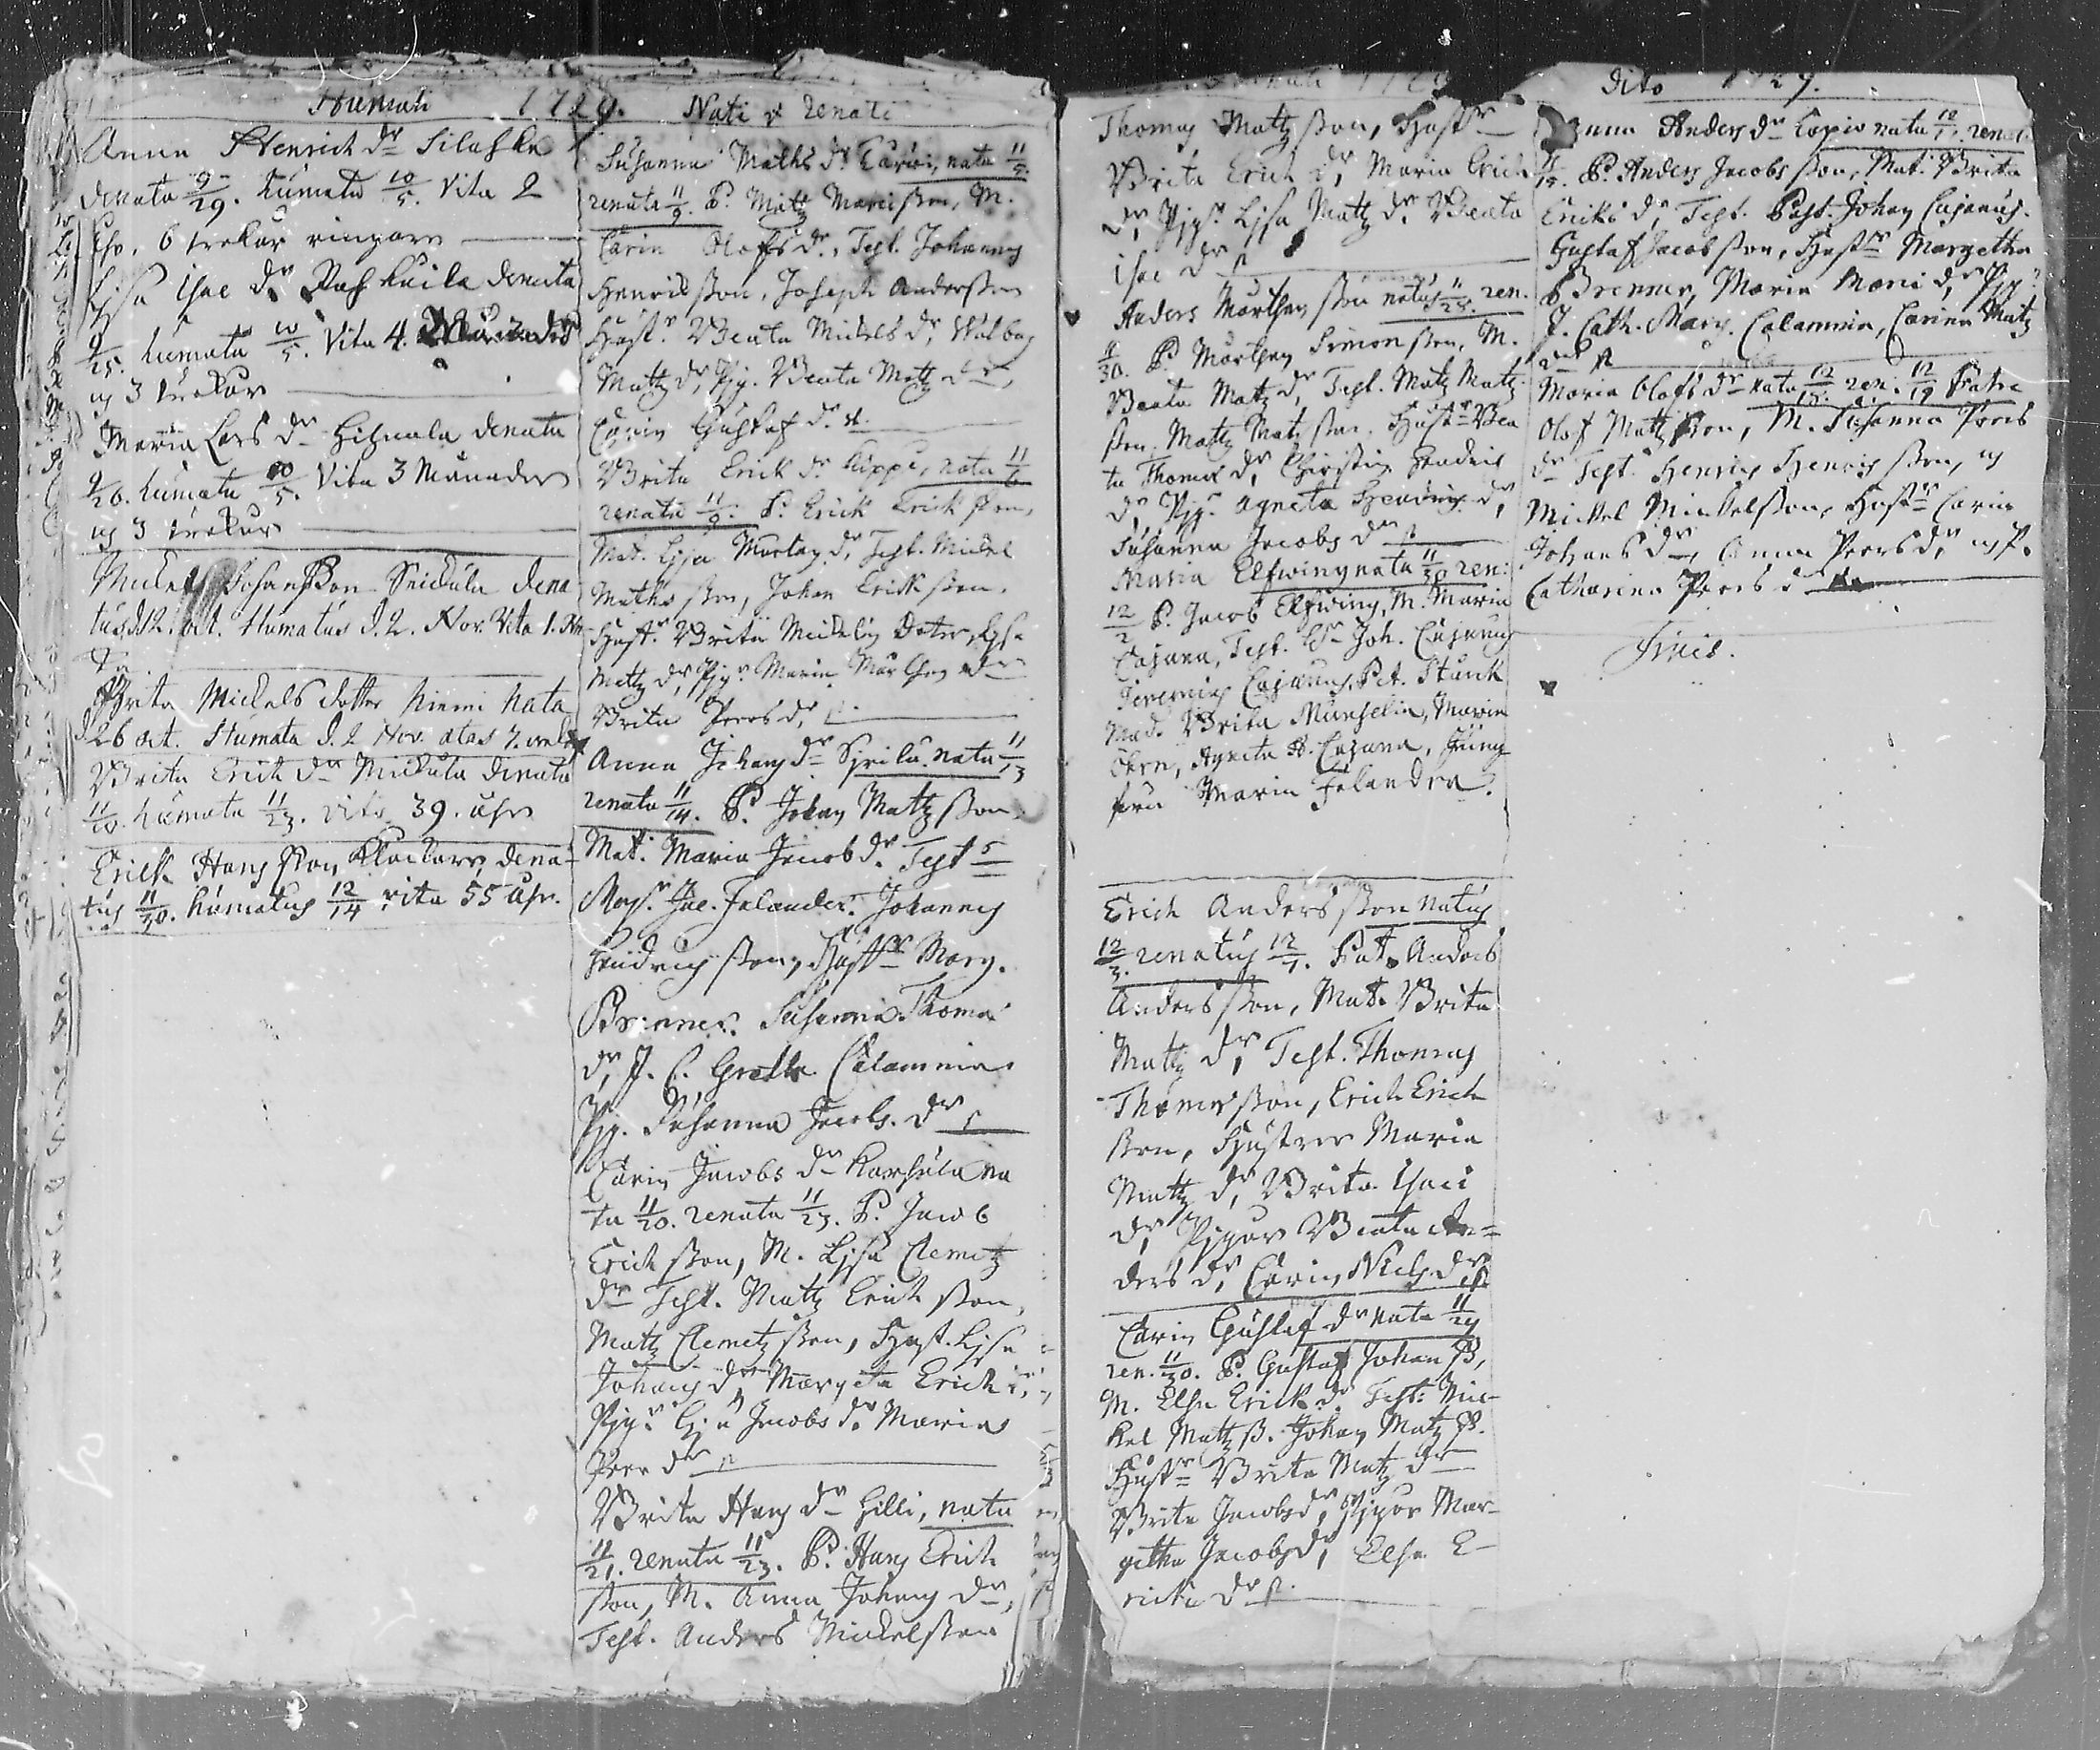 Humati 1729.
Anna Henrich dr Silahla
denata 9/29. humata 10/5. Vita 2
åhr, 6 wekor ringare
Lisa Isac dr Rahkoila denata
9/25. humata 10/5. Vita 4. Månader
och 3 wekor
Maria Lars dr Hihnala denata
9/20. humata 10/5. Vita 3 Månader
och 3 wekor
Mickel Johansson Snickula dena
tus d. 12. oct. Humatus d. 2. Nov. Vita 1.
Brita Mickels dotter Niemi Nata
d 26 oct. Humata d. 2 Nov. ætas 7. wekor
Brita Erich dr Mickula denata
11/10. humata 11/23. vita 39. åhr
Erich Hans son Klockars, dena-
tus 11/30. humatus 12/14 vita 55 åhr.
Nati & renati
Susanna Maths dr Carvi, nata 11/5.
renata 11/9. P. Matz Matzsson, M.
Carin Olofs dr, Test. Johannes
Henrichsson, Joseph Andersson
Hust. Beata Mickels dr, Walbog
Matz dr, Pig. Beata Matz dr,
Carin Gustaf dr
Brita Erick dr Kippi, nata 11/6
renata 11/9. P. Erick Erickson,
Mat. Lisa Morten dr, Test. Mickel
Mathsson, Johan Ericksson.
Hustr. Brita Mickels Doter, Lisa
Matz dr, Pigr Maria Mårthen dr
Brita Peers dr,
Anna Johans dr Syrila. nata 11/13
renata 11/14. P. Johan Matzsson.
Mat. Maria Jacobs dr Test
Mag. Jac. Falander. Johannes
Hindrichsson, Hustr Marg.
Brenner. Susanna Thomas
dr, J. C. Gretha Calamnia
Pig. Susanna Jacobs. dr
Carin Jacobs dr Karhula na
ta 11/20. renata 11/23. P. Jacob
Erichsson, M. Lisa Clemetz
dr Test. Matz Erichsson,
Matz Clemetzsson, Hust. Lisa
Johans dr, Margeta Erich dr,
Pigr Lisa Jacobs dr Maria
Peer dr
Brita Hans dr Hilli, nata
11/21. renata 11/23. P. Hans Erich
sson, M. Anna Johans dr,
Test. Anders Mickelsson
Thomas Matzsson, Hustr
Brita Erich dr, Maria Erich
dr, Pigr Lisa Matz dr Beata
Isac dr
Anders Mårthensson natus 11/25. ren.
11/30. P. Mårthen Simonsson, M.
Beata Matz dr, Test. Matz Matz-
sson. Matz Matzsson. Hustr Bea
ta Thomas dr, Christin Hendric
dr, Pigr Agneta Hendrich dr,
Susanna Jacobs dr
Maria Elfwing nata 11/30 ren:
12/2 P. Jacob Elfwing, M. Maria
Cajana, Test. Joh. Cajanus
Jeremias Cajanus, Pet. Starck
Mad. Brita Munselia, Maria
Agneta H. Cajana, Jung
fru Maria Falandra.
Erich Andersson natus
12/3. renatus 12/7. Pat. Anders
Andersson, Mat. Brita
Matz dr, Test. Thomas
Thomasson, Erich Erich
sson, Hustror Maria
Matz dr, Brita Isaci
dr, Pigor Beata An-
ders dr, Carin Niels dr
Carin Gustaf dr nata 11/29
ren. 11/30. P. Gustaf Johan ß,
M. Elsa Erick dr Test: Mic-
kel Matz ß. Johan Matz ß.
Hustr Brita Matz dr
Brita Jacobs dr, Pigor Mar-
getha Jacobs dr, Elsa E-
richi dr
dito 1729.
Anna Anders dr Lopio nata 12/1. renat.
12/15. P. Anders Jacobsson, Mat. Brita
Eriks dr, Test. Past. Johan Cajanus.
Gustaf Jacobsson, Hustr Margetha
Brenner, Maria Matzi dr, Pig.
J. Cath. Marg. Calamnia, Carin Matz
dr
Maria Olofs dr nata 12/15. ren. 12/19 Patre
Olof Matzsson, M. Susanna Peers
dr Test. Henrich Henrichsson, och
Mickel Mickelsson, Hustr Carin
Johans dr, Anna Peers dr, och P.
Catharina Peers dr
Finis.